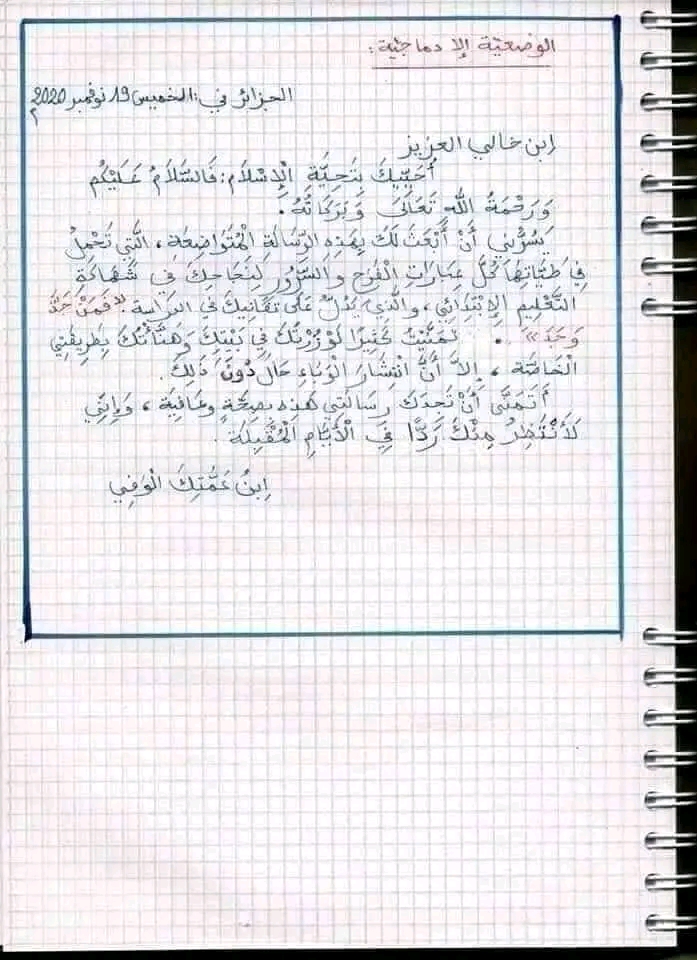 الوضعية الإدماجية:
الجزائر في: الخميس 19 نوفمبر 2020م
ابن خالي العزيز
أُحَيِّيكَ بِتَحِيَّةِ الْإِسْلَامِ: فَالسَّلَامُ عَلَيْكُم
وَرَحْمَةُ اللهِ تَعَالَى وَبَرَكَاتُهُ.
يَسُرُّنِي أَنْ أَبْعَثَ لَكَ بِهَذِهِ الرِّسَالَةِ الْمُتَوَاضِعَةِ، الَّتِي تَحْمِلُ
فِي طَيَّاتِهَا كُلَّ عِبَارَاتِ الْفَرَحِ وَالسُّرُورِ لِنَجَاحِكَ فِي شَهَادَةِ
التَّعْلِيمِ الْإِبْتِدَائِي، وَالَّذِي يَدُلُّ عَلَى تَفَانِيكَ فِي الدِّرَاسَةِ «فَمَنْ جَدَّ
وَجَدَ». تَمَنَّيْتُ كَثِيرًا لَوْ زُرْتُكَ فِي بَيْتِكَ وَهَنَّأْتُكَ بِطَرِيقَتِي
الْخَاصَّةِ، إِلاَّ أَنَّ انْتِشَارَ الْوَبَاءِ حَالَ دُونَ ذَلِكَ.
أَتَمَنَّى أَنْ تَجِدَكَ رِسَالَتِي هَذِهِ بِصِحَّةٍ وَعَافِيَةٍ، وَإِنِّنِي
لَأَنْتَظِرُ مِنْكَ رَدًّا فِي الْأَيَّامِ الْمُقْبِلَةِ.
اِبْنُ عَمَّتِكَ الْوَفِي